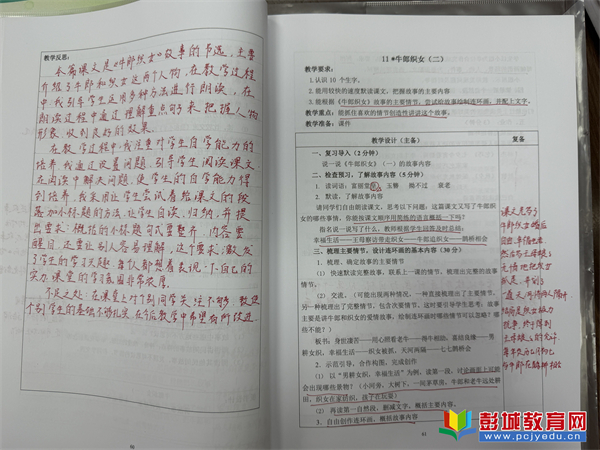 教学反思:
本篇课文是《牛郎织女》故事的节选,主要
介绍了牛郎和织女这两个人物,在教学过程
中,我引导学生运用多种方法进行朗读,在
朗读过程中通过理解重点句来把握人物
形象,收到良好的效果。
在教学过程中,我注重对学生自学能力的
培养,我通过设置问题,引导学生阅读课文
在阅读中解决问题,使学生的自学能力得
到培养,我采用让学生尝试着给课文的段
落加小标题的方法,让学生自读、归纳,并提
出要求:概括的小标题句式要整齐,内容要
醒目,还要让别人容易理解,这个要求,激发
了学生的学习兴趣,每个人都想着表现一下自己的
实力,课堂的学习氛围非常浓厚。
不足之处:在课堂上对个别同学关注不够,致使
个别学生的基础不够扎实,在今后教学中希望有所改进
11*牛郎织女(二)
教学要求:
1.认识 10 个生字。
2.能用较快的速度默读课文,把握故事的主要内容
3.能根据《牛郎织女》故事的主要情节,尝试给故事绘制连环画,并配上文字。
教学重点:能抓住喜欢的情节创造性讲述这个故事。
教学准备:课件
教学设计(主备)
复备
一、复习导入(2 分钟)
说一说《牛郎织女》(一)的故事内容
二、检查预习,了解故事内容(5 分钟)
1. 读词语:富丽堂皇 玉簪 拗不过 衰老
2. 默读,了解故事内容
请同学们自由朗读课文,思考以下问题:这篇课文又写了牛郎
织女的哪些事情,你能按课文顺序用简练的语言概括一下吗?
指名说一说写了什么,教师根据学生回答及时总结:
幸福生活——王母察访带走织女——牛郎追织女——鹊桥相会
三、梳理主要情节,设计连环画的基本内容(30 分)
1. 梳理,确定故事的主要情节
(1) 快速默读完整故事,联系上一课的情节,梳理完整故事的主要内
容。
(2) 交流。(可能出现两种情况,一种直接梳理出了主要情节;另一
种梳理出了完整情节,包含次要情节,这时要引导学生思考:故事
主要是讲牛郎和织女的爱情故事,绘制连环画时哪些情节可以忽略?哪
些不能?)
板书:身世凄苦——用心照看老牛——得牛相助,喜结良缘——男
耕女织,幸福生活——织女被抓,天河两隔——七七鹊桥会
2. 示范引导,合作构图,完成创作
(1) 以“男耕女织,幸福生活”为例,读第一段,讨论画面上可能
会出现哪些景物?(小河旁,大树下,一间茅草房,牛郎和老牛远处耕
田,织女在家纺织,孩子在玩耍)
(2) 再读第一自然段,删减文字,概括主要内容。
3. 自由创作连环画,概括故事内容
课文先写了
牛郎织女婚后
自由、幸福的生活
61
彭城教育网
www.pcjyedu.cn